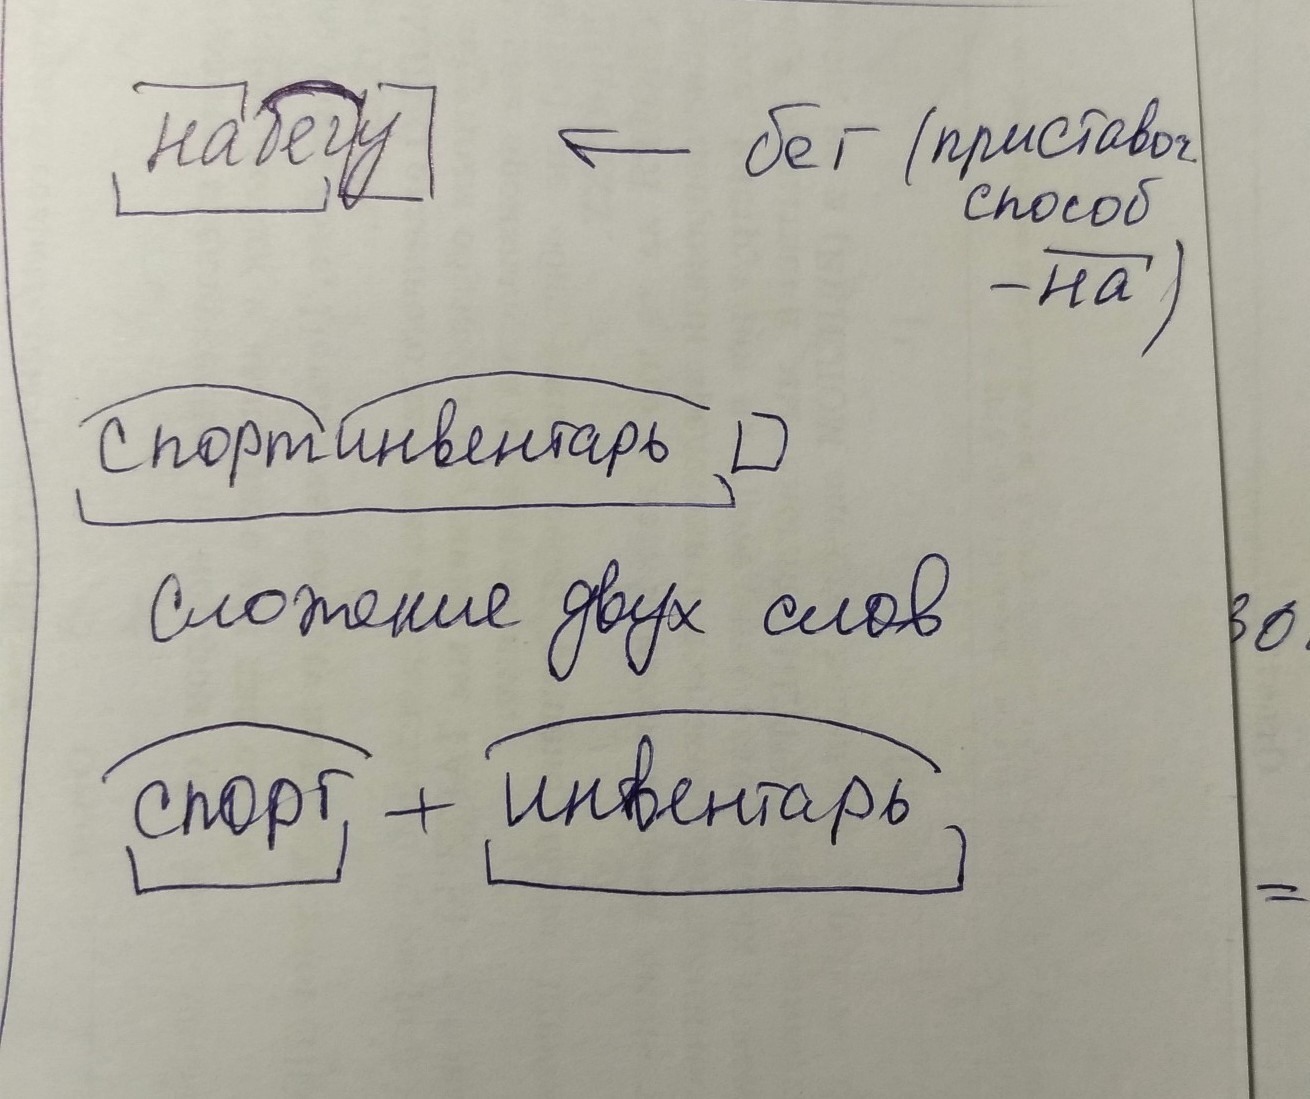 набегу ← бег (приставоч
способ
-на)
спортинвентарь
сложение двух слов
спорт + инвентарь
=